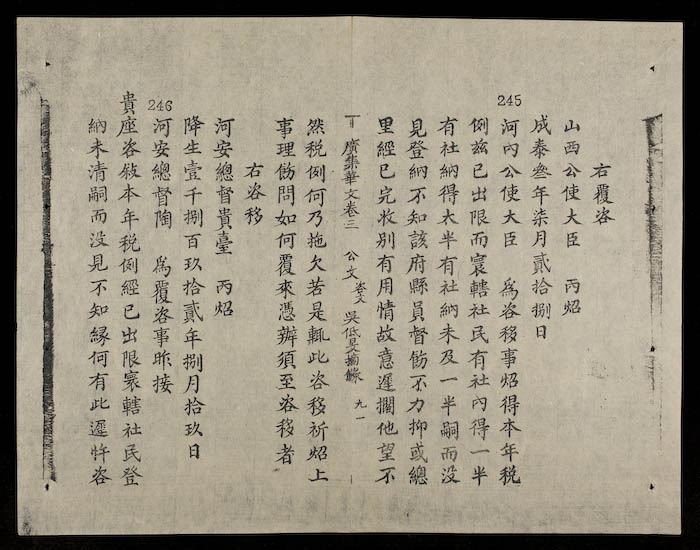 右覆咨
山西公使大臣 丙炤
成泰叁年柒月貳拾捌日
245
河內公使大臣 爲咨移事炤得本年稅
例兹已出限而寰轄社民有社內得一半
有社納得大半有社納未及一半嗣而没
見登納不知該府縣員督飭不力抑或總
里經已完收別有用情故意遲擱他望不
廣集華文卷三 公文 咨文 吳低旻摘錄 九一
然稅例何乃拖欠若是輒此咨移祈炤上
事理飭問如何覆來憑辦須至咨移者
右咨移
河安總督貴臺 丙炤
降生壹千捌百玖拾貳年捌月拾玖日
246
河安總督陶 爲覆咨事昨接
貴座咨敘本年稅例經已出限寰轄社民登
納未清嗣而没見不知緣何有此遲忤咨